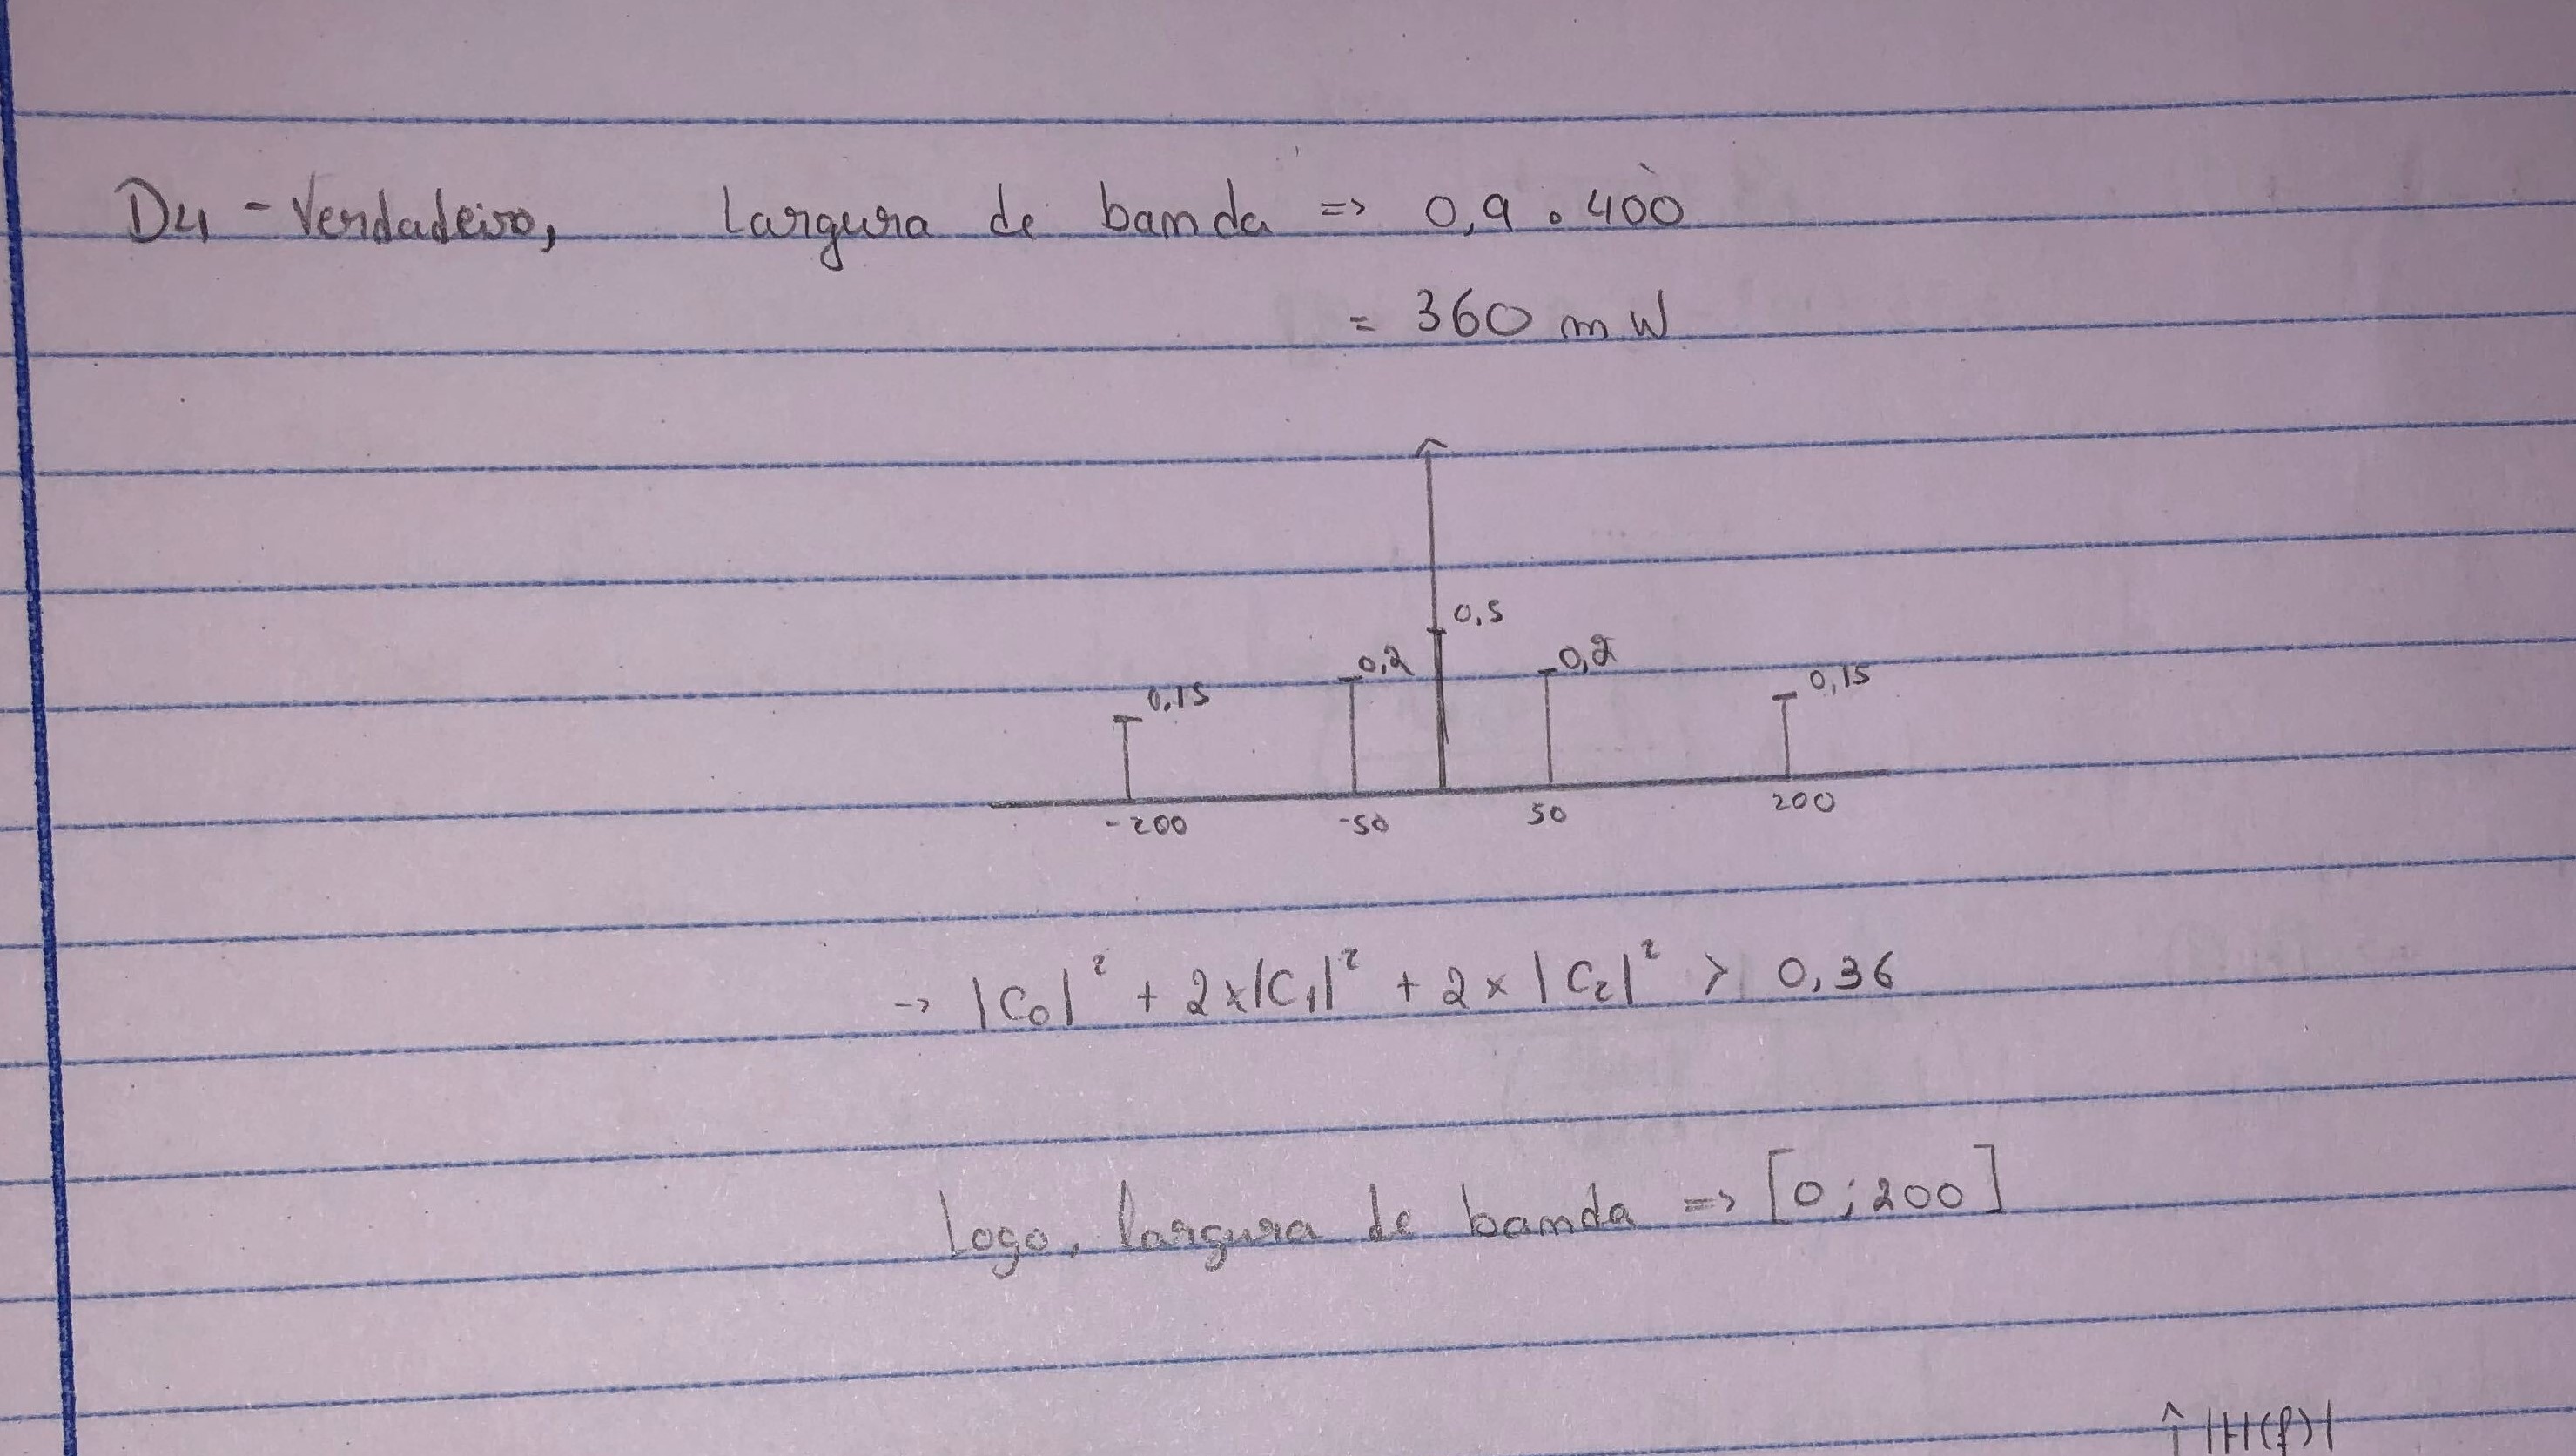 D4 - Verdadeiro, Largura de banda => 0,9 . 400
= 360 mW
0,5
0,2 0,2
0,15 0,15
-200 -50 50 200
-> |C₀|² + 2x|C₁|² + 2x|C₂|² > 0,36
Logo, largura de banda => [0;200]
|H(f)|